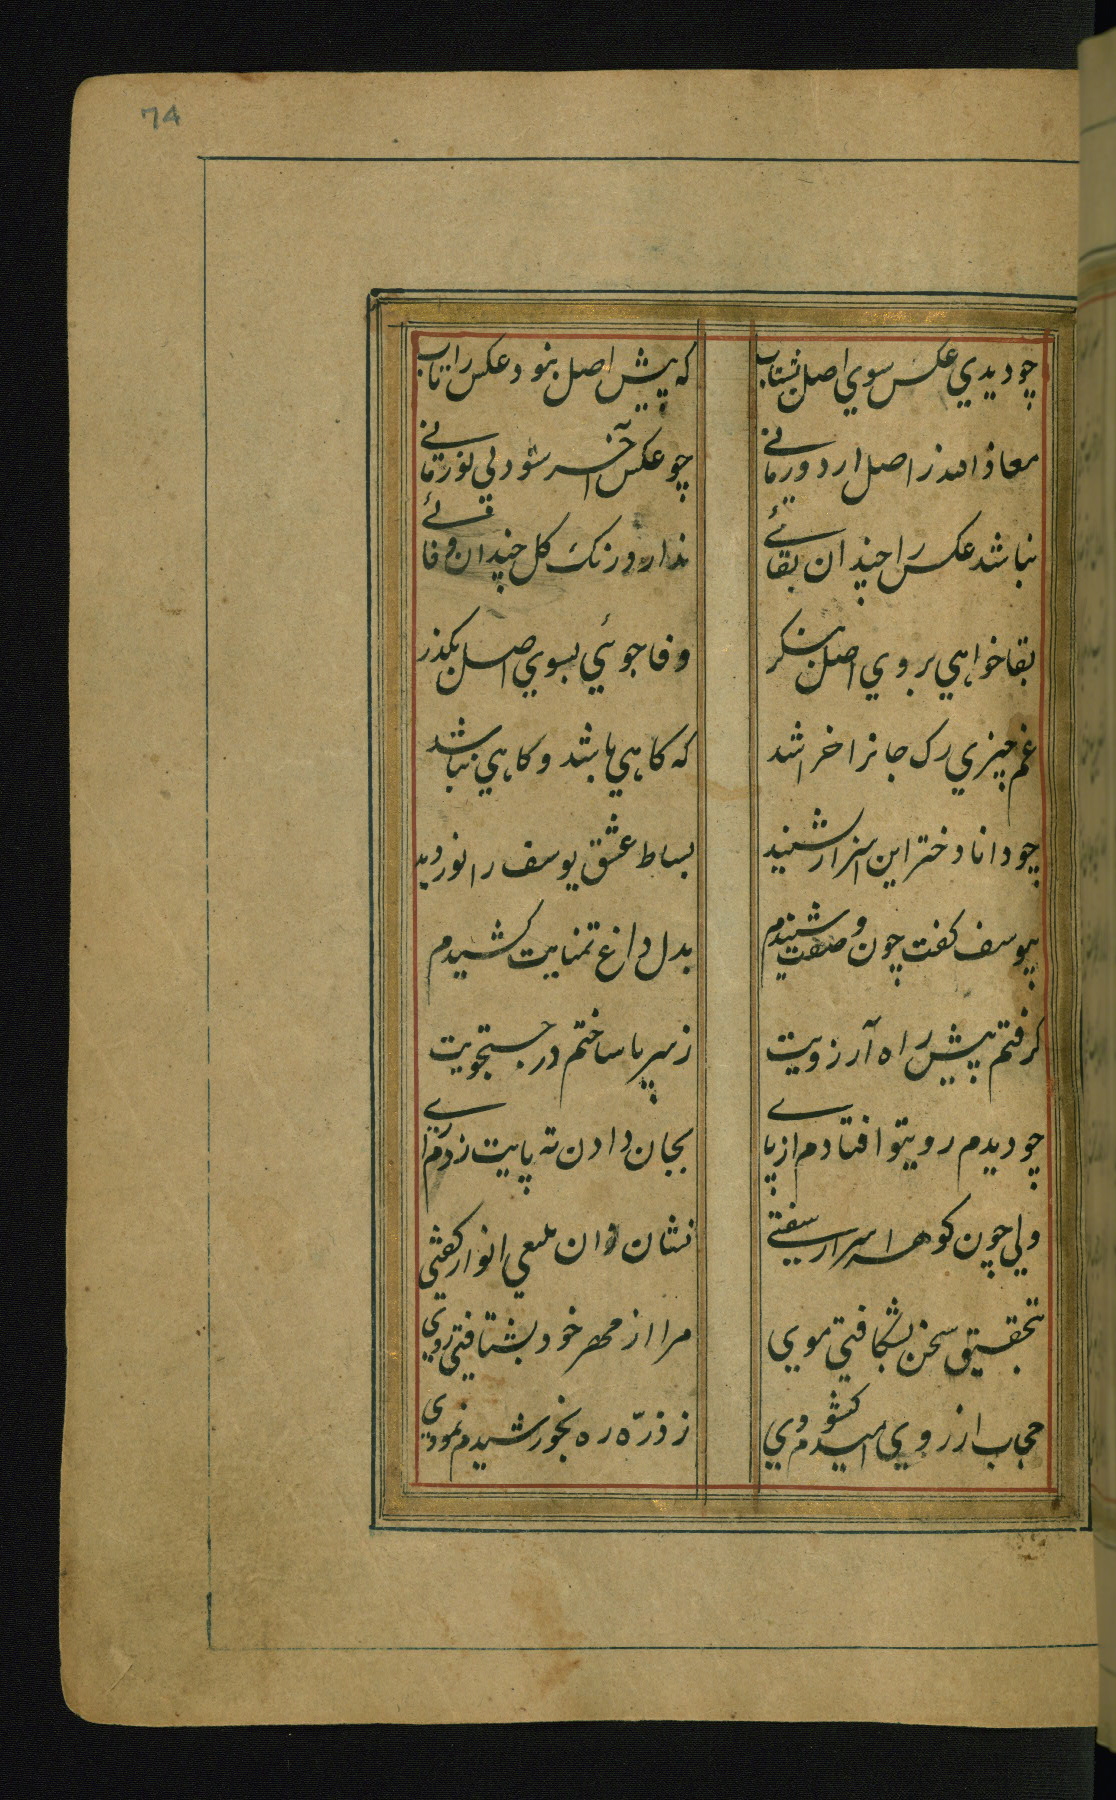 74
چو ديدي عكس سوي اصل بشتاب
كه پيش اصل نبود عكس را تاب
معاذ الله ز اصل ار دور مانے
چو عكس آخر شود بي نور مانے
نباشد عكس را چندان بقائے
ندارد رنك كل چندان وفائے
بقا خواهي بروي اصل بنكر
وفا جوئي بسوي اصل بكذر
غم چيزي رك جانرا خراشد
كه كاهي باشد و كاهي نباشد
چو دانا دختر اين اسرار بشنيد
بساط عشق يوسف را نورديد
بيوسف كفت چون وصفت شنيدم
بدل داغ تمنايت كشيدم
كرفتم پيش راه آرزويت
ز سر پا ساختم در جستجويت
چو ديدم رويتو افتادم از پاے
بجان دادن ته پايت زدم راے
ولي چون كوهر اسرار سفتے
نشان زان منبعي انوار كفتي
بتحقيق سخن بشكافتي موي
مرا از مهر خود بشتافتي روي
حجاب از روي اميدم كشودي
ز ذرّه ره بخورشيدم نمودي